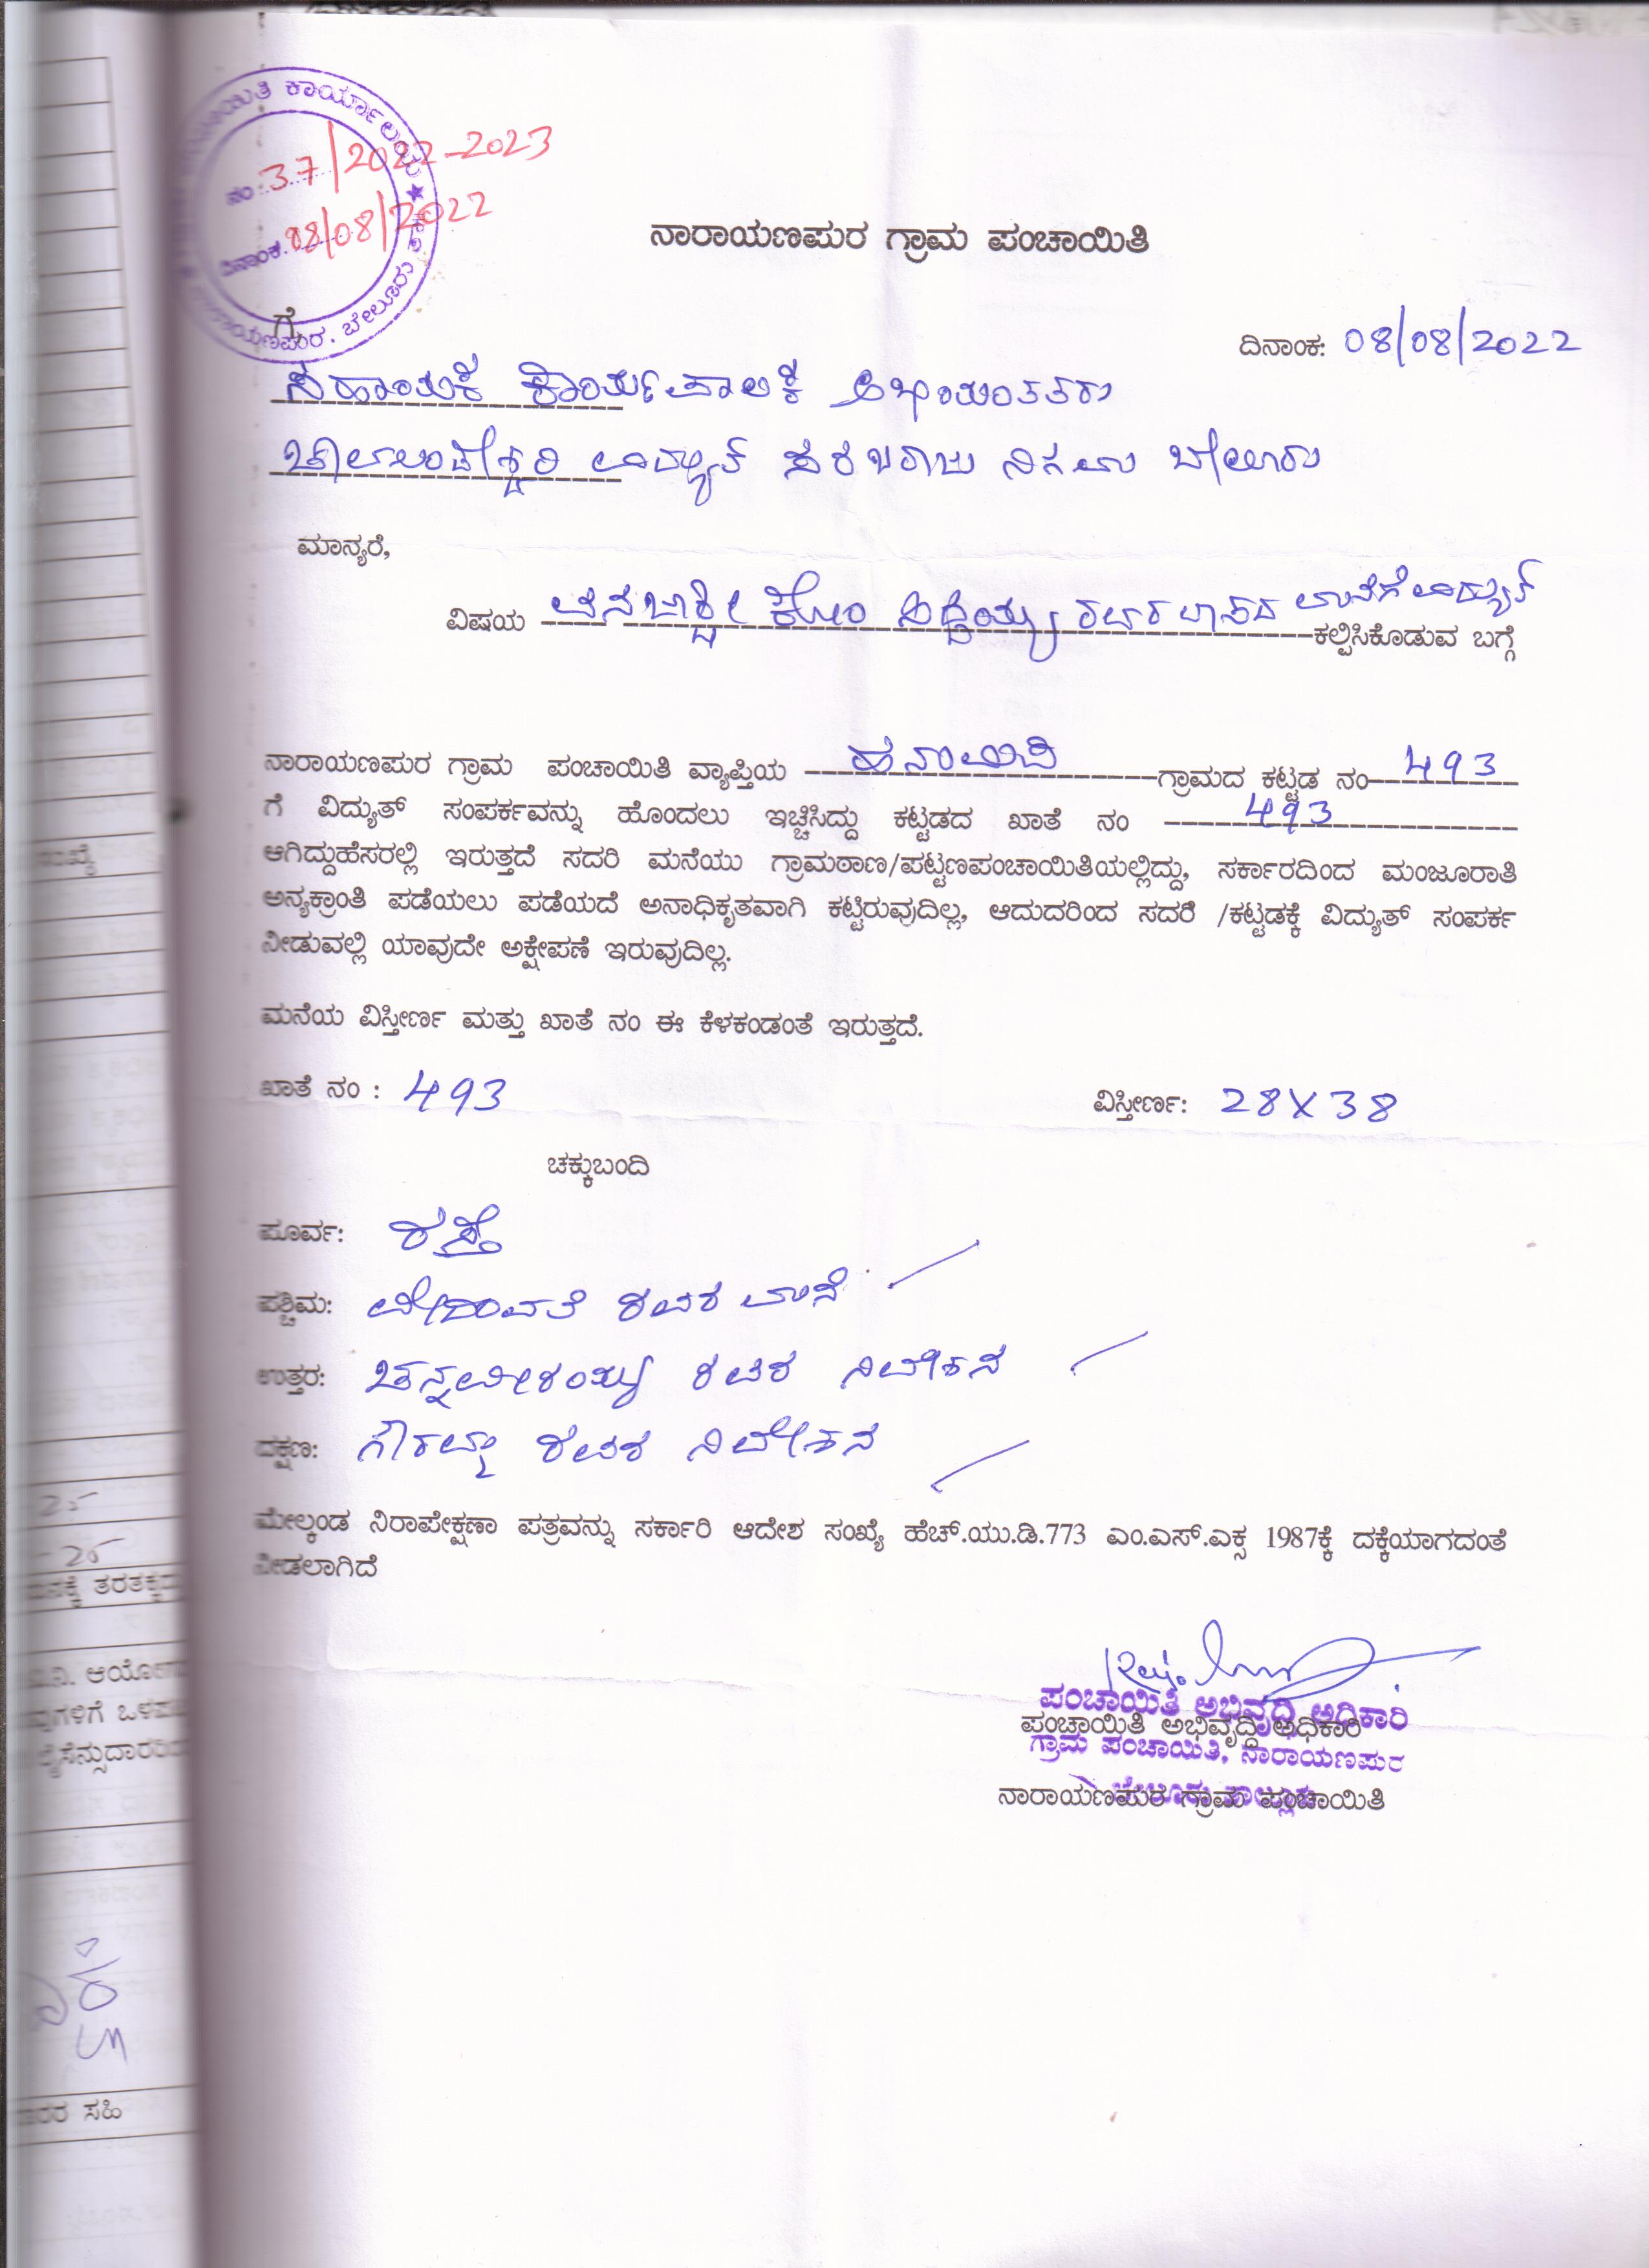 ಕಾರ್ಯಾಲಯ
ನಂ: 37/2022-2023
ದಿನಾಂಕ. 08/08/2022
ನಾರಾಯಣಪುರ. ಬೇಲೂರು
ನಾರಾಯಣಪುರ ಗ್ರಾಮ ಪಂಚಾಯಿತಿ
ದಿನಾಂಕ: 08/08/2022
ಗೆ
ಸಹಾಯಕ ಕಾರ್ಯಪಾಲಕ
ವಿದ್ಯುತ್ ಸರಬರಾಜು ನಿಗಮ ಬೇಲೂರು
ಮಾನ್ಯರೆ,
ವಿಷಯ ಕೋಂ ಸಿದ್ದಯ್ಯ ರವರ ವಾಸದ ಮನೆಗೆ ವಿದ್ಯುತ್
ಕಲ್ಪಿಸಿಕೊಡುವ ಬಗ್ಗೆ
ನಾರಾಯಣಪುರ ಗ್ರಾಮ ಪಂಚಾಯಿತಿ ವ್ಯಾಪ್ತಿಯ ಗ್ರಾಮದ ಕಟ್ಟಡ ನಂ 493
ಗೆ ವಿದ್ಯುತ್ ಸಂಪರ್ಕವನ್ನು ಹೊಂದಲು ಇಚ್ಛಿಸಿದ್ದು ಕಟ್ಟಡದ ಖಾತೆ ನಂ 493
ಆಗಿದ್ದುಹೆಸರಲ್ಲಿ ಇರುತ್ತದೆ ಸದರಿ ಮನೆಯು ಗ್ರಾಮಠಾಣ/ಪಟ್ಟಣಪಂಚಾಯಿತಿಯಲ್ಲಿದ್ದು, ಸರ್ಕಾರದಿಂದ ಮಂಜೂರಾತಿ
ಅನ್ಯಕ್ರಾಂತಿ ಪಡೆಯಲು ಪಡೆಯದೆ ಅನಾಧಿಕೃತವಾಗಿ ಕಟ್ಟಿರುವುದಿಲ್ಲ, ಆದುದರಿಂದ ಸದರಿ /ಕಟ್ಟಡಕ್ಕೆ ವಿದ್ಯುತ್ ಸಂಪರ್ಕ
ನೀಡುವಲ್ಲಿ ಯಾವುದೇ ಅಕ್ಷೇಪಣೆ ಇರುವುದಿಲ್ಲ.
ಮನೆಯ ವಿಸ್ತೀರ್ಣ ಮತ್ತು ಖಾತೆ ನಂ ಈ ಕೆಳಕಂಡಂತೆ ಇರುತ್ತದೆ.
ಖಾತೆ ನಂ : 493 ವಿಸ್ತೀರ್ಣ: 28X38
ಚಕ್ಕುಬಂದಿ
ಪೂರ್ವ: ರಸ್ತೆ
ಪಶ್ಚಿಮ: ರವರ ಮನೆ
ಉತ್ತರ: ಚನ್ನವೀರಯ್ಯ ರವರ ನಿವೇಶನ
ದಕ್ಷಣ: ಗೌರಮ್ಮ ರವರ ನಿವೇಶನ
ಮೇಲ್ಕಂಡ ನಿರಾಪೇಕ್ಷಣಾ ಪತ್ರವನ್ನು ಸರ್ಕಾರಿ ಆದೇಶ ಸಂಖ್ಯೆ ಹೆಚ್.ಯು.ಡಿ.773 ಎಂ.ಎಸ್.ಎಕ್ಸ 1987ಕ್ಕೆ ದಕ್ಕೆಯಾಗದಂತೆ
ನೀಡಲಾಗಿದೆ
ಪಂಚಾಯಿತಿ ಅಭಿವೃದ್ಧಿ ಅಧಿಕಾರಿ
ಪಂಚಾಯಿತಿ ಅಭಿವೃದ್ಧಿ ಅಧಿಕಾರಿ
ಗ್ರಾಮ ಪಂಚಾಯಿತಿ, ನಾರಾಯಣಪುರ
ನಾರಾಯಣಪುರ ಗ್ರಾಮ ಪಂಚಾಯಿತಿ